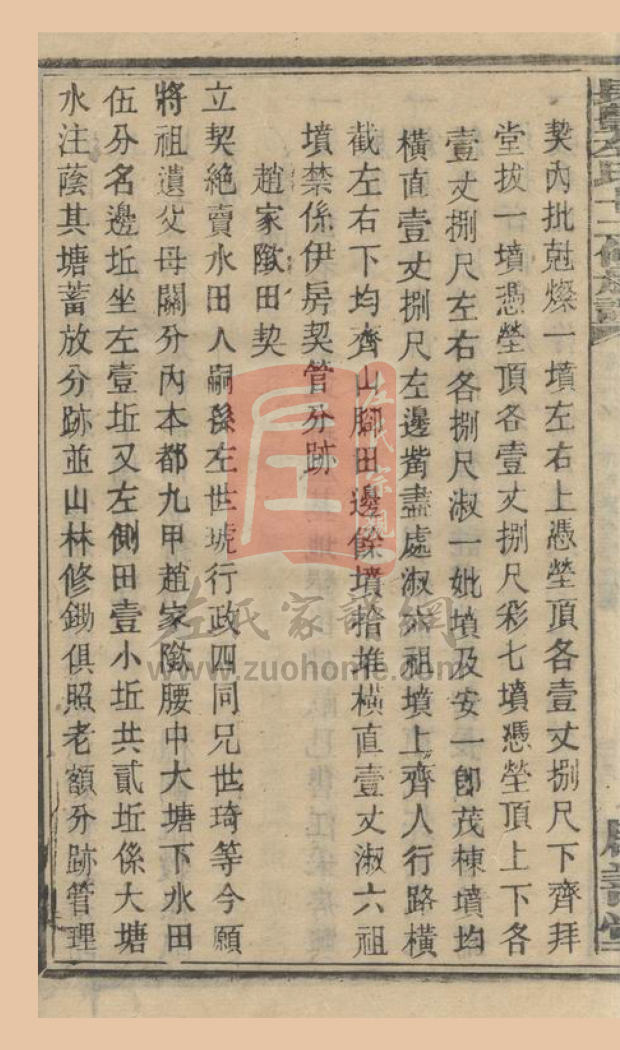 契內批尅燦一墳左右上憑塋頂各壹丈捌尺下齊拜
堂拔一墳憑塋頂各壹丈捌尺彩七墳憑塋頂上下各
壹丈捌尺左右各捌尺淑一妣墳及安一郎茂棟墳均
橫直壹丈捌尺左邊觜盡處淑六祖墳上齊人行路橫
截左右下均齊山腳田邊餘墳拾堆橫直壹丈淑六祖
墳禁係伊房契管分跡
趙家㘭田契
立契絶賣水田人嗣孫左世琥行政四同兄世琦等今願
將祖遺父母鬮分內本都九甲趙家㘭腰中大塘下水田
伍分名邊坵坐左壹坵又左側田壹小坵共貳坵係大塘
水注蔭其塘蓄放分跡並山林修鋤俱照老額分跡管理
左氏宗親
左氏家譜網
www.zuohome.com